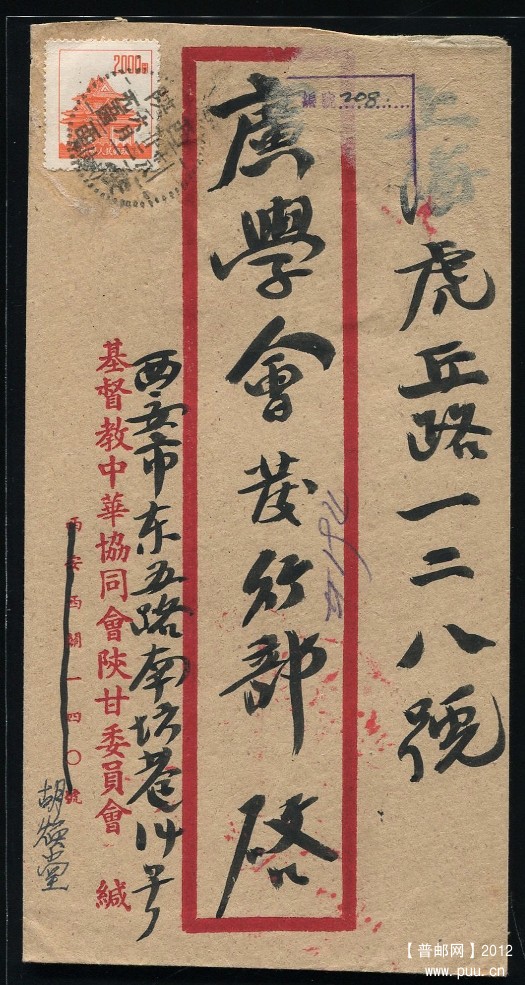 上海
虎丘路一二八號
編號 208
廣學會发行部 啓
西安市东五路南坊巷14号
基督教中華協同會陝甘委員會 緘
西安西關一四〇號
胡焕堂
2000
【普邮网】2012
www.puu.cn